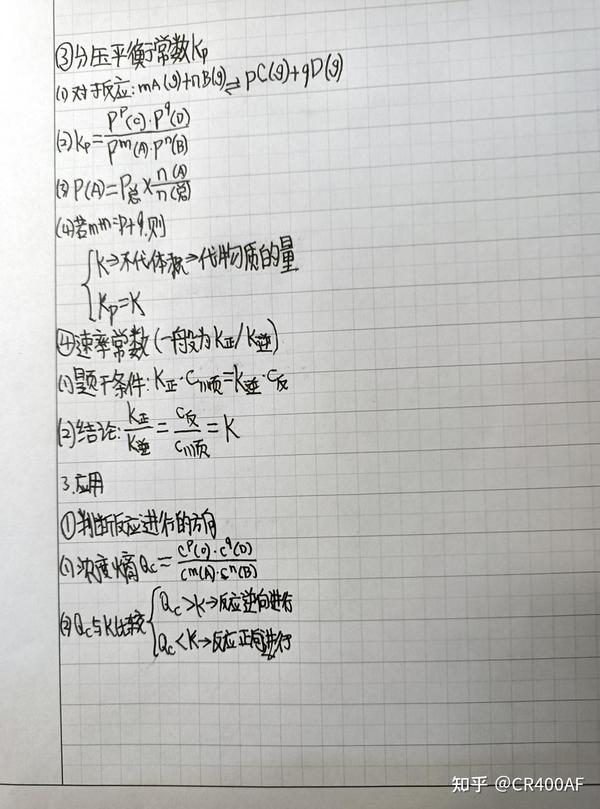 ③分压平衡常数Kp
(1)对于反应:mA(g)+nB(g)⇌pC(g)+qD(g)
(2)Kp=P^p(C)·P^q(D)/P^m(A)·P^n(B)
(3)P(A)=P总×n(A)/n(总)
(4)若m+n=p+q,则
{K→不代体积→代物质的量
Kp=K
④速率常数(一般为K正/K逆)
(1)题干条件:K正·C顺=K逆·C反
(2)结论:K正/K逆=C反/C顺=K
3.应用
①判断反应进行的方向
(1)浓度熵Qc=C^p(C)·C^q(D)/C^m(A)·C^n(B)
(2)Qc与K比较{Qc>K→反应逆向进行
Qc<K→反应正向进行
知乎 @CR400AF